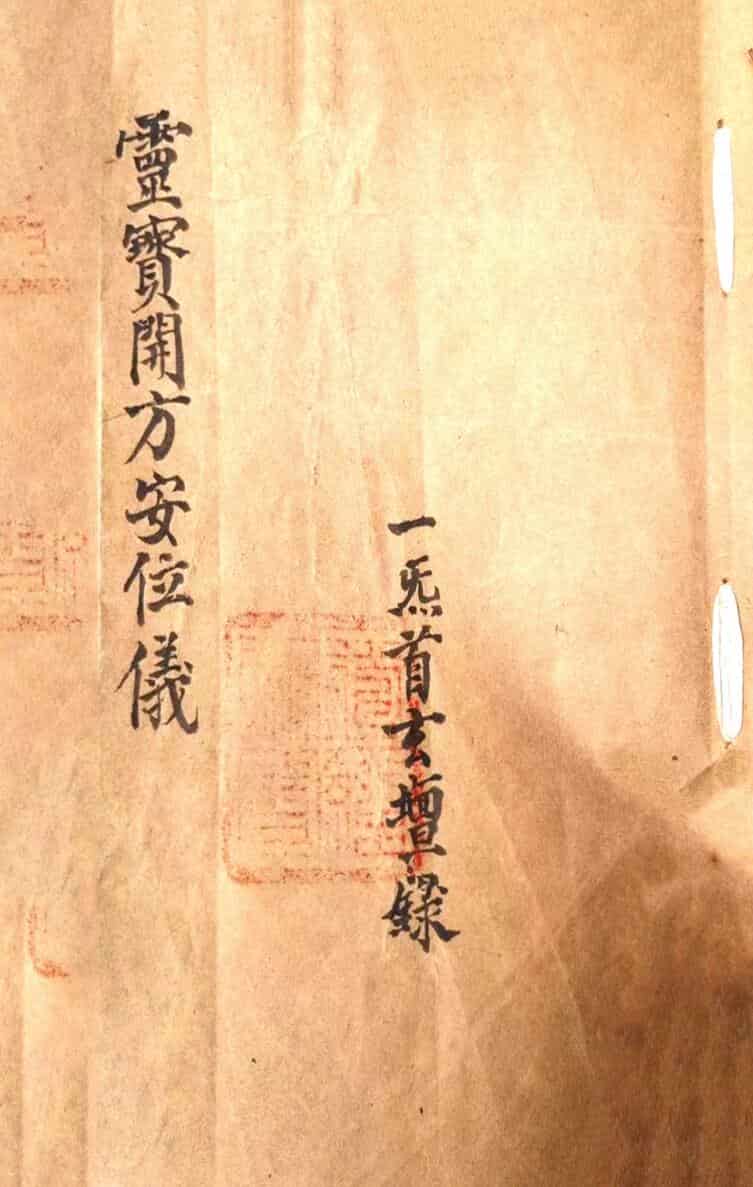 一炁首玄壇錄
靈寳開方安位儀